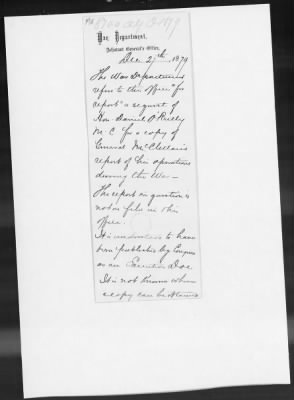 War Department,
Adjutant General's Office,
Dec. 27th, 1879
The War Department
refers to this office "for
report" a request of
Hon Daniel O'Reilly
M.C. for a copy of
General McClellan's
report of his operations
during the War —
The report in question is
not on file in this
office.
It is understood to have
been published by Congress
as an Executive Doc.
It is not known where
a copy can be obtained